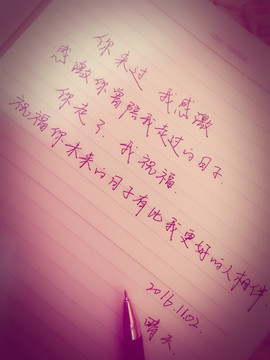 你来过 我感激
感激你曾陪我走过的日子
你走了、我祝福.
祝福你未来的日子有比我更好的人相伴.
2016.11.02.
晴天